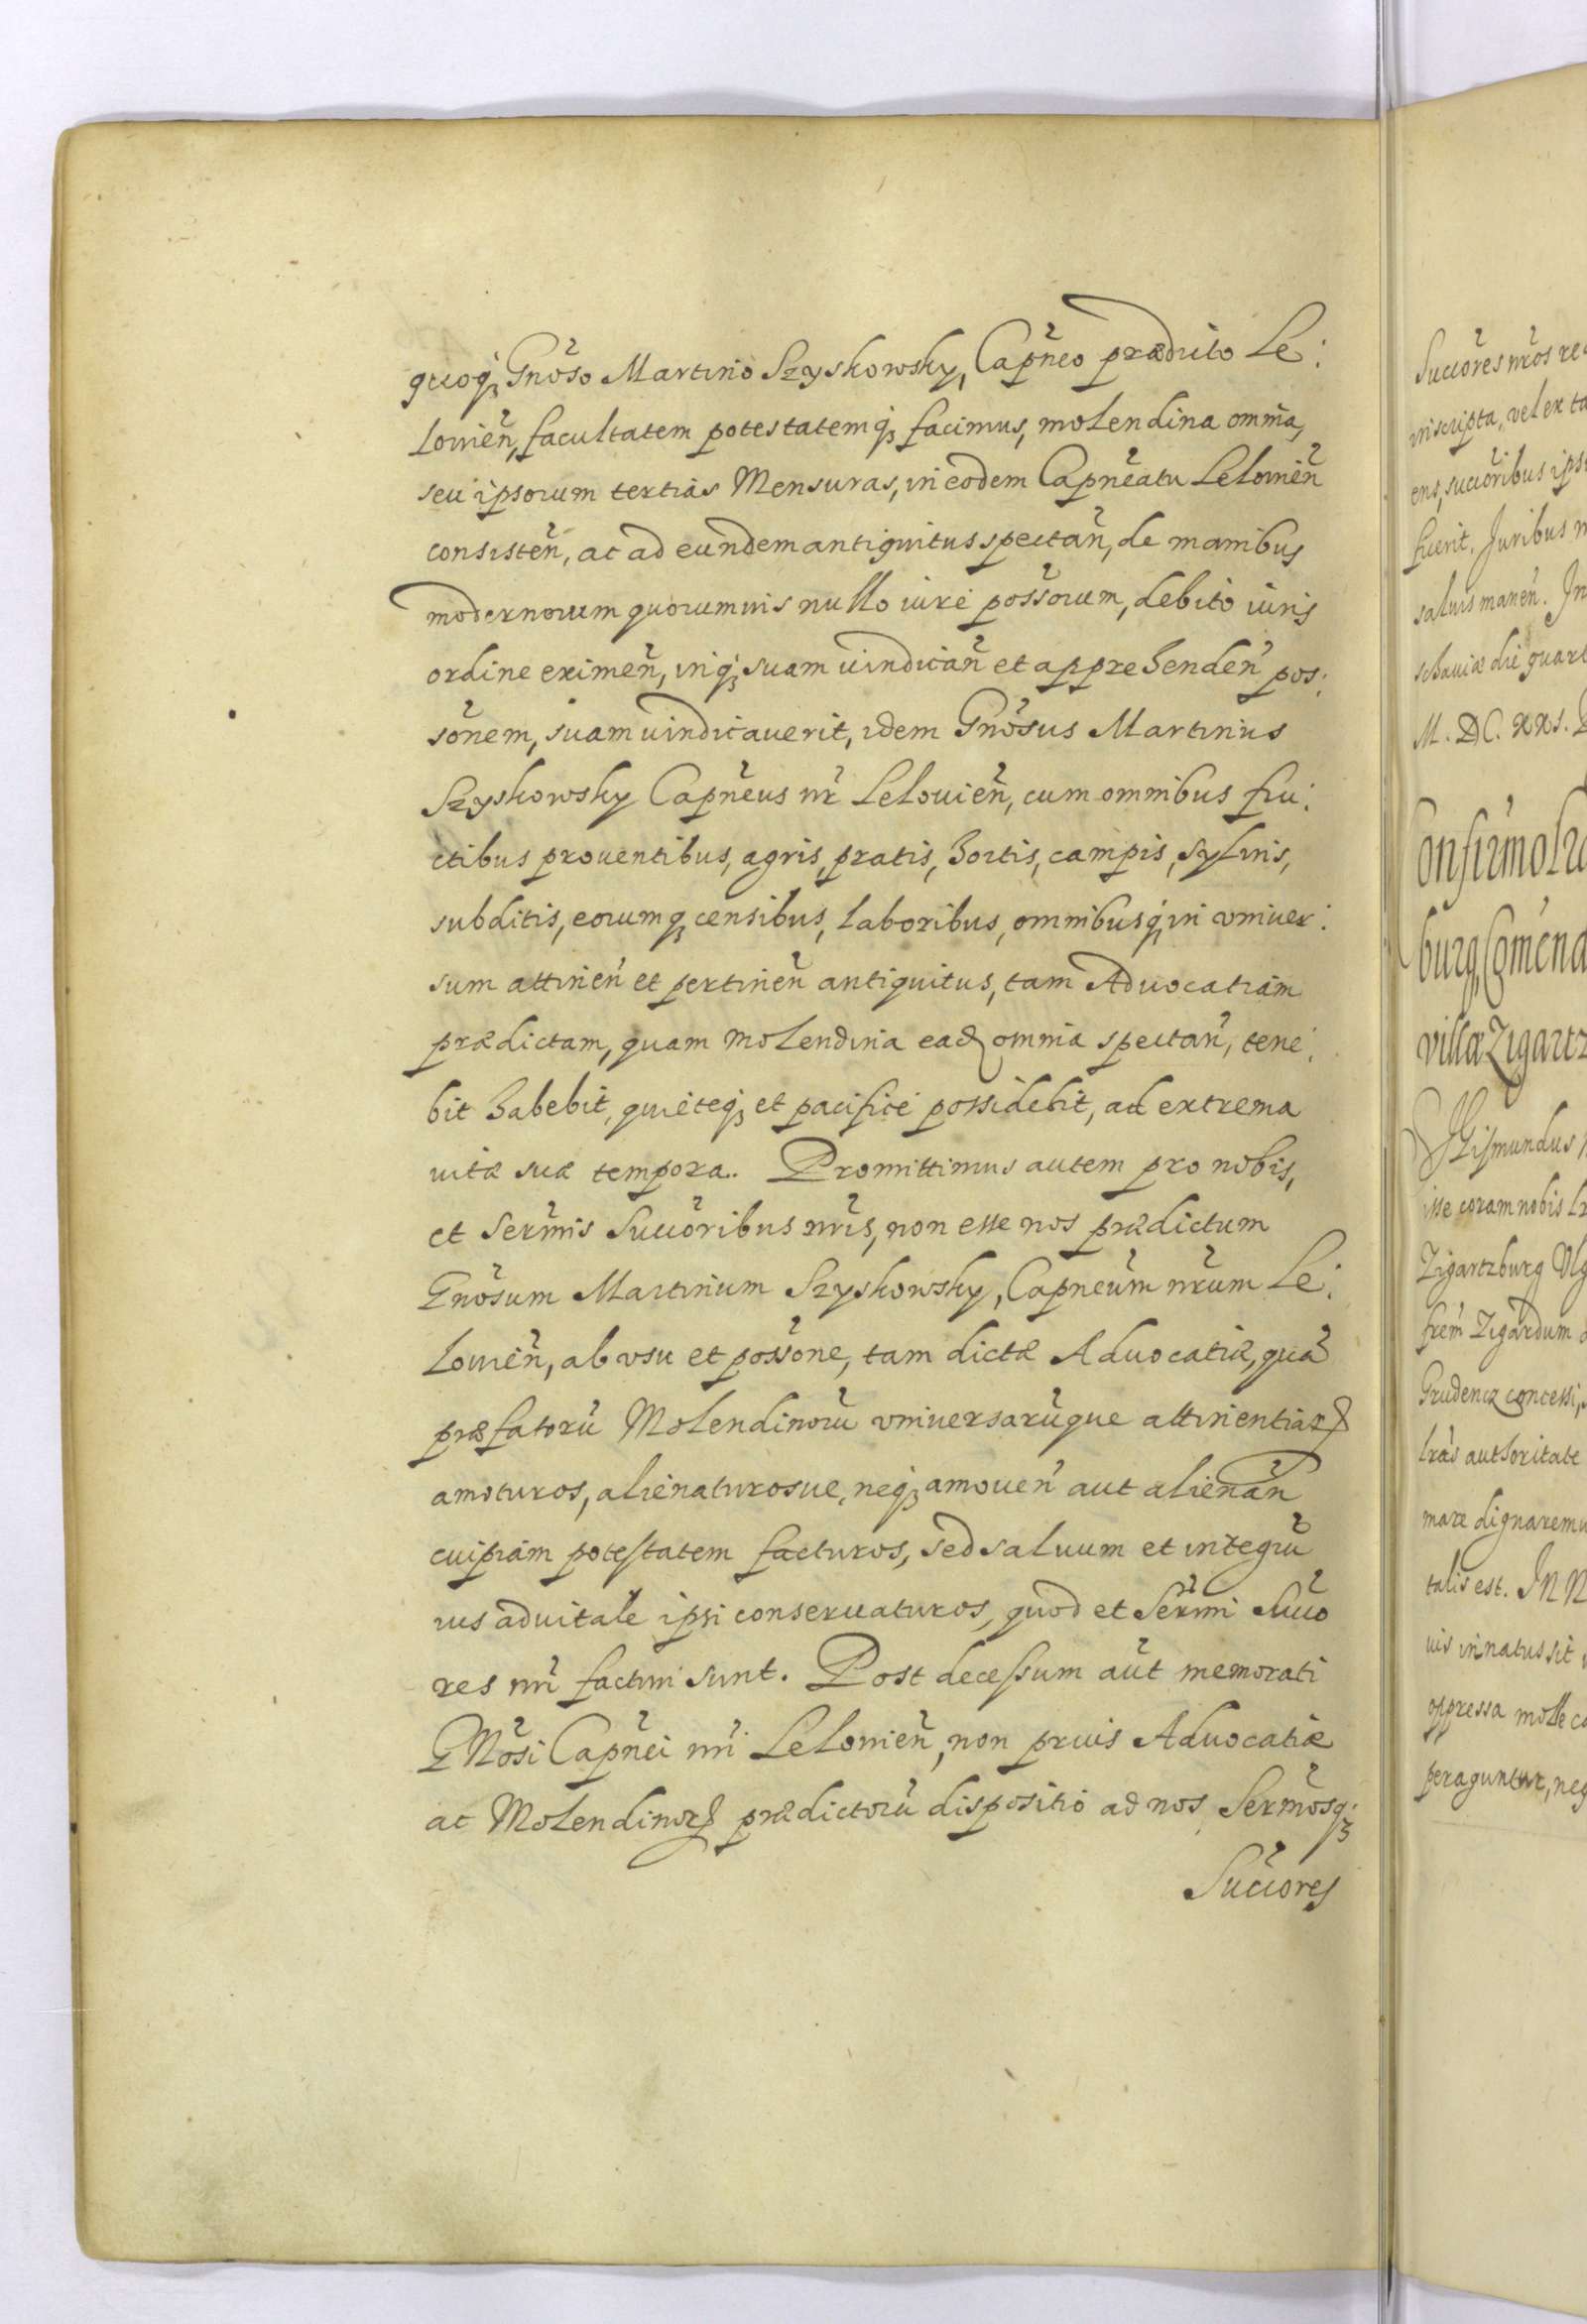 quoq₃ Gnõso Martino Szyskowsky, Capñeo prædicto Le:
louieñ, facultatem potestatemq₃ facimus, molendina omnia,
seu ipsorum tertias Mensuras, in eodem Capñeatu Lelouieñ
consisteñ, ac ad eundem antiquitus spectañ, de manibus
modernorum quorumuis nullo iure possõrum, debito iuris
ordine eximeñ, inq₃ suam uindicañ et apprehendeñ pos:
sõnem, suam uindicauerit, idem Gnõsus Martinus
Szyskowsky Capñeus nr̃ Lelouieñ, cum omnibus fru:
ctibus prouentibus, agris, pratis, hortis, campis, syluis,
subditis, eorumq₃ censibus, laboribus, omnibusq₃ in vniuer:
sum attineñ et pertineñ antiquitus, tam Aduocatiam
prædictam, quam molendina eadꝫ omnia spectañ, tene:
bit habebit, quieteq₃ et pacifice possidebit, ad extrema
uitæ suæ tempora. Promittimus autem pro nobis,
et Serm̃is Succõribus nr̃is, non esse nos prædictum
Gnõsum Martinum Szyskowsky, Capñeum nr̃um Le:
louieñ, ab vsu et possõne, tam dictæ Aduocatiæ, quã
præfatorũ Molendinorũ vniuersarũque attinentiaꝝ
amoturos, alienaturosue, neq₃ amoueñ aut alienañ
cuipiam potestatem facturos, sed saluum et integrũ
ius aduitale ipsi conseruaturos, quod et Serm̃i Succõ
res nr̃i facturi sunt. Post decessum aũt memorati
GNõsi Capñei nr̃i Lelouieñ, non prius Aduocatiæ
ac Molendinoꝝ prædictorũ dispositio ad nos Serm̃osq₃
Succõres
Succõres nr̃os re
inscripta, vel ex ta
ens, succõribus ips
fuerit. Juribus n
saluis maneñ. In
schauiæ die quart
M. DC. xxs.
Confirmo
burg, Com̃enda
villæ Zigartz
Sigismundus
isse coram nobis
Zigartzburg
frem̃ Zigardum
Grudencz concessi,
lrãs authoritate
mare dignaremu
talis est. IN N
uis in natus sit
oppressa mole
peraguntur, neg